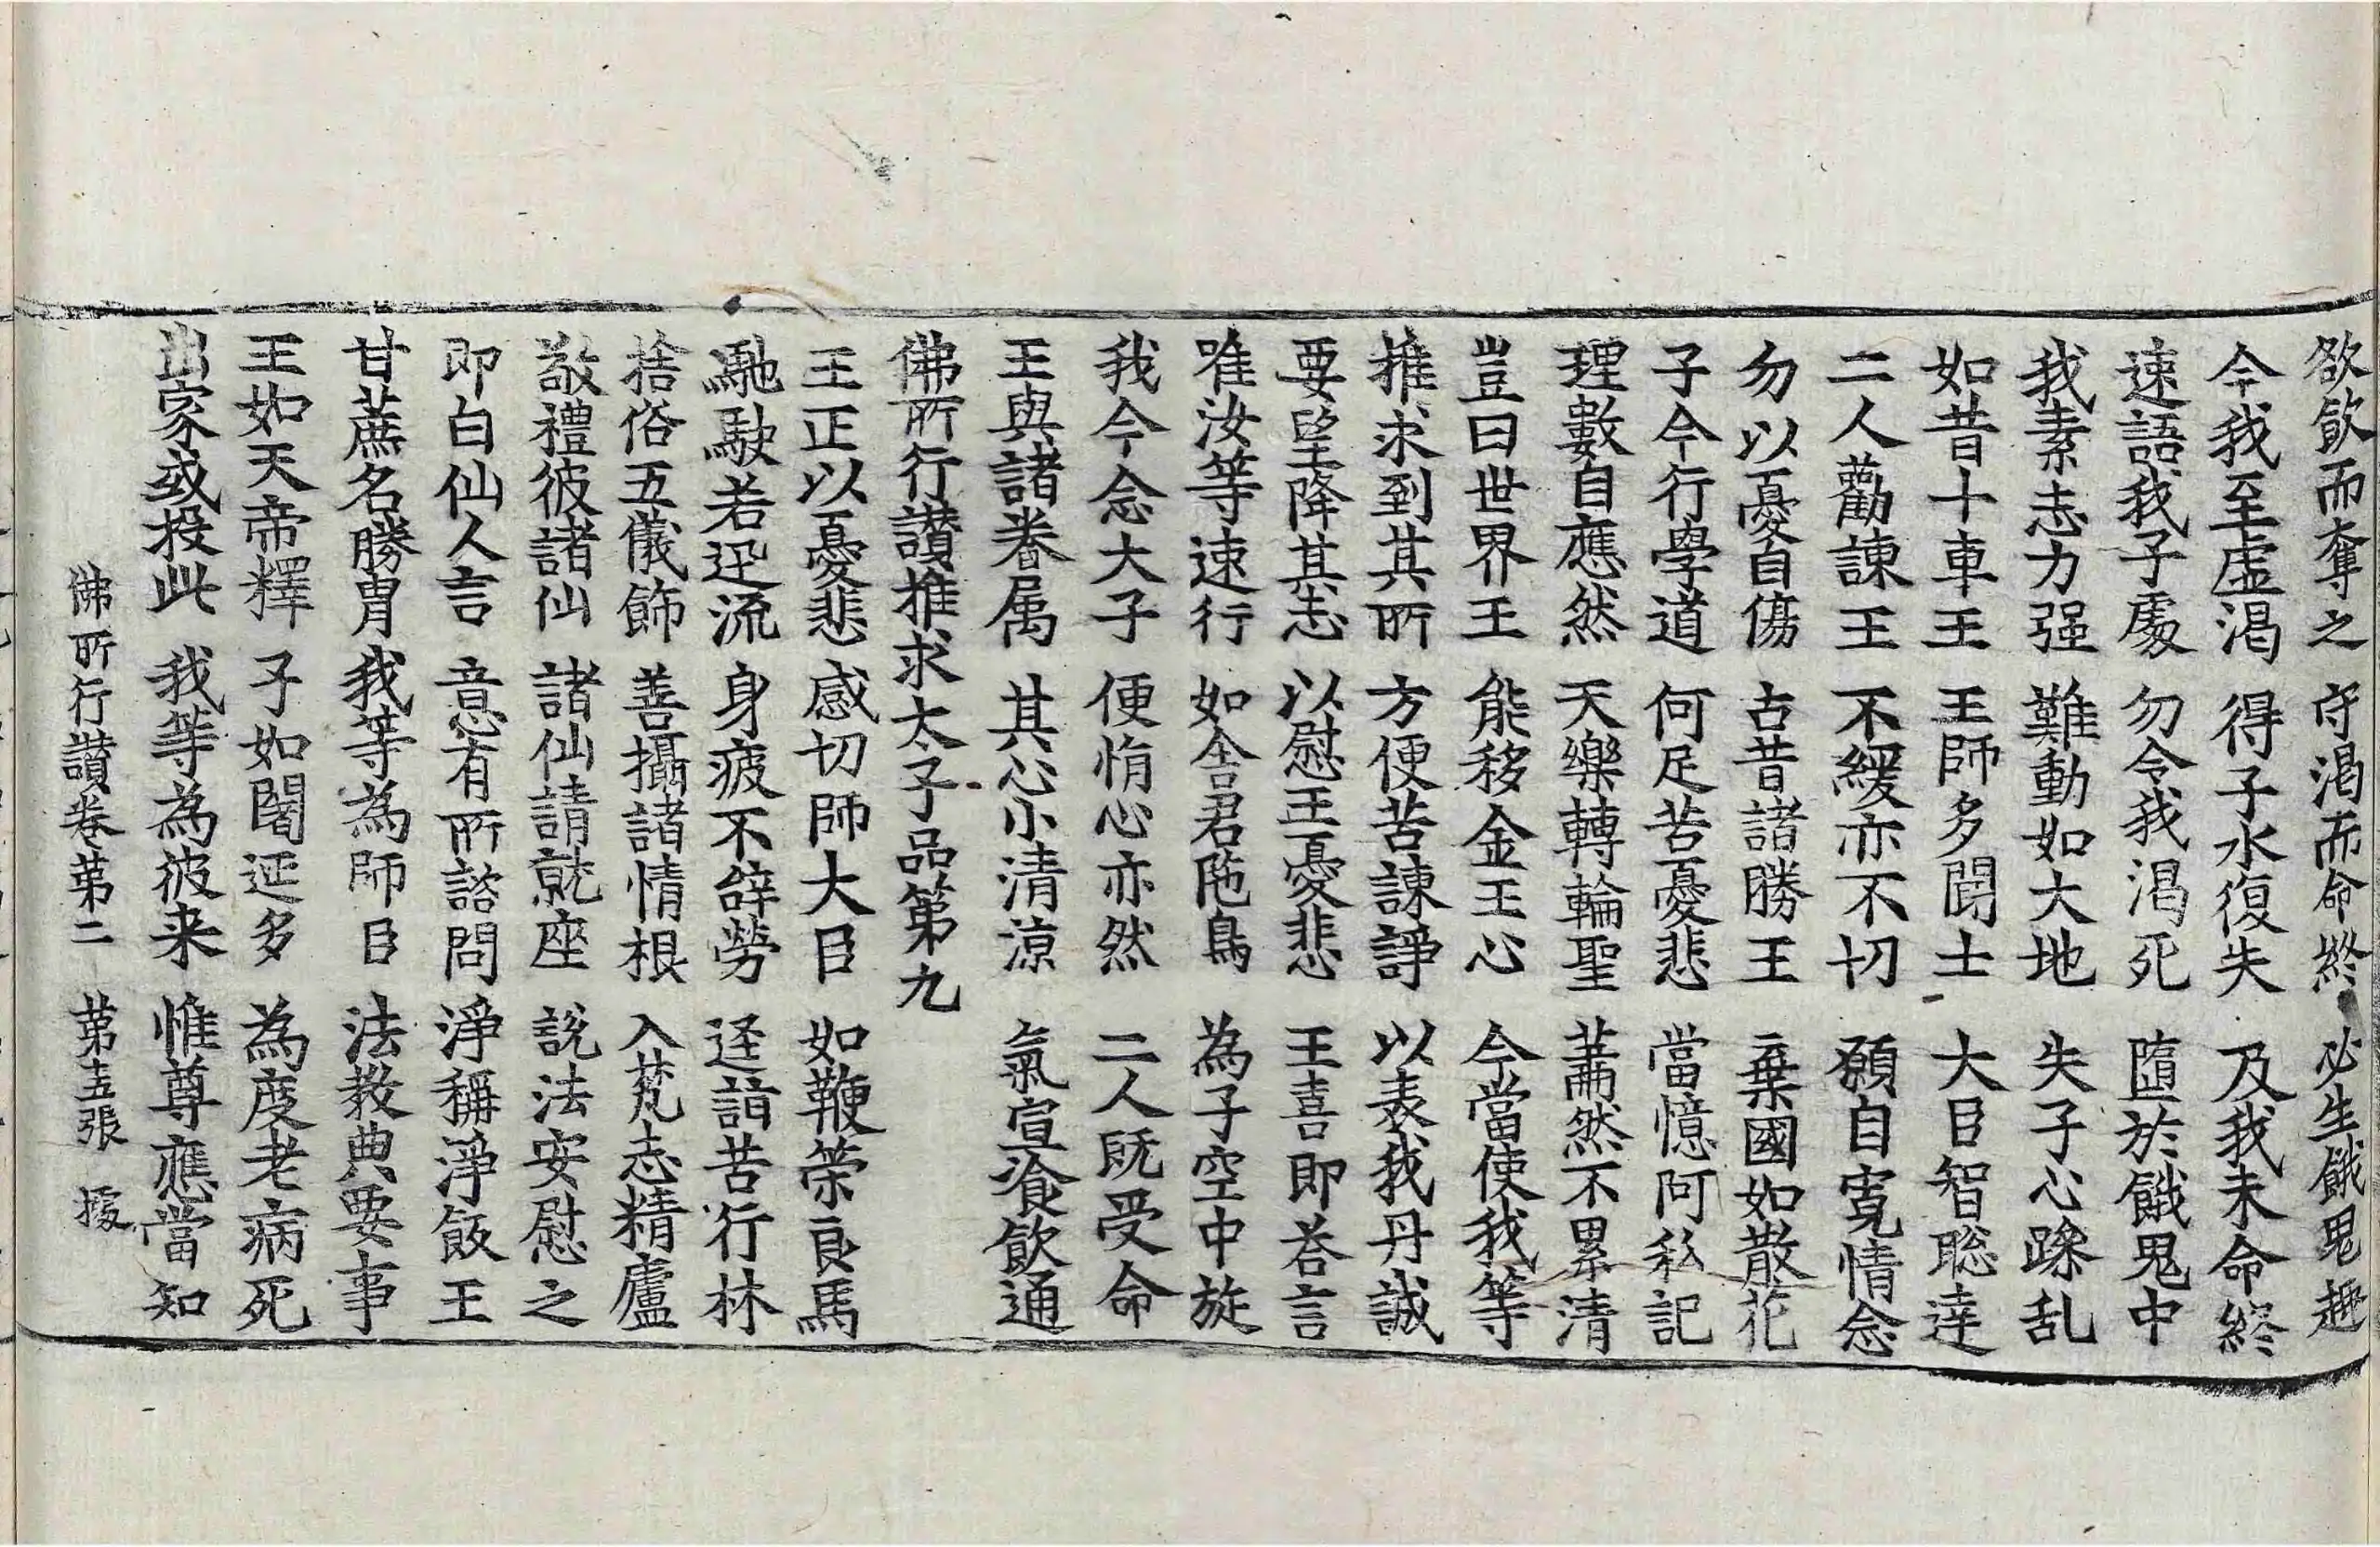 欲飲而奪之 守渴而命終 必生餓鬼趣
今我至虛渴 得子水復失 及我未命終
速語我子處 勿令我渴死 墮於餓鬼中
我素志力强 難動如大地 失子心躁乱
如昔十車王 王師多聞士 大臣智聡達
二人勸諫王 不緩亦不切 願自寬情念
勿以憂自傷 古昔諸勝王 棄國如散花
子今行學道 何足苦憂悲 當憶阿私記
理數自應然 天樂轉輪聖 蕭然不累清
豈曰世界王 能移金王心 今當使我等
推求到其所 方便苦諫諍 以表我丹誠
要望降其志 以慰王憂悲 王喜即荅言
唯汝等速行 如舍君陁鳥 為子空中旋
我今念大子 便悁心亦然 二人旣受命
王與諸眷属 其心小清涼 氣宣飡飲通
佛所行讃推求太子品第九
王正以憂悲 感切師大臣 如鞭策良馬
馳駛若迅流 身疲不辞勞 逕詣苦行林
捨俗五儀飾 善攝諸情根 入梵志精廬
敬禮彼諸仙 諸仙請就座 說法安慰之
即白仙人言 意有所諮問 淨稱淨飯王
甘蔗名勝胄 我等為師臣 法教典要事
王如天帝釋 子如闍延多 為度老病死
出家或投此 我等為彼来 惟尊應當知
佛所行讃卷第二 第五張